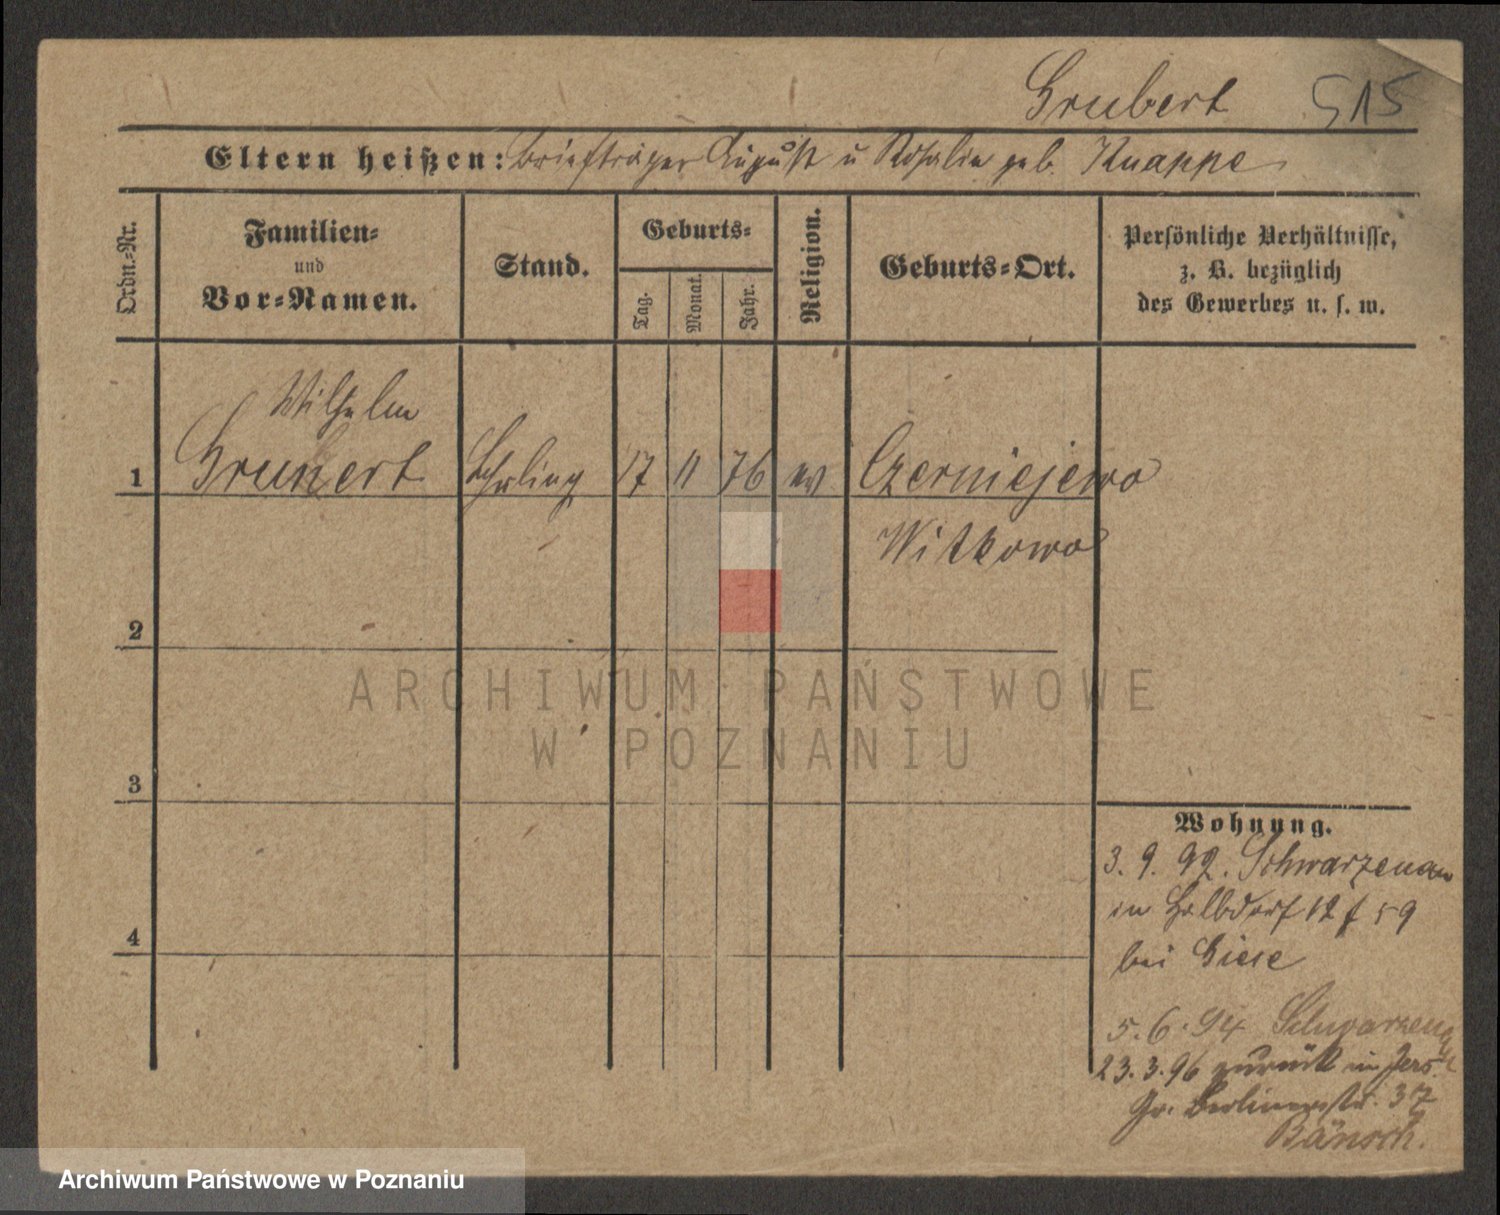 Grubert 515
Eltern heißen: Briefträger August u Rosalie geb. Knappe
Ordn.-Nr.
Familien-
und
Vor-Namen.
Stand.
Geburts-
Tag.
Monat.
Jahr.
Religion.
Geburts-Ort.
Persönliche Verhältnisse,
z. B. bezüglich
des Gewerbes u. s. w.
Wilhelm
1 Grunert Lehrling 17 11 76 ev Czerniejewo
Witkowo
2
3
4
Wohnung.
3. 9. 92. Schwarzenau
in Halbdorf 12 f 59
bei Giese
5. 6. 94 Schwarzenau
23. 3. 96 zurück in
Gr. Berlinerstr. 37
Bänsch.
ARCHIWUM PAŃSTWOWE
W POZNANIU
Archiwum Państwowe w Poznaniu